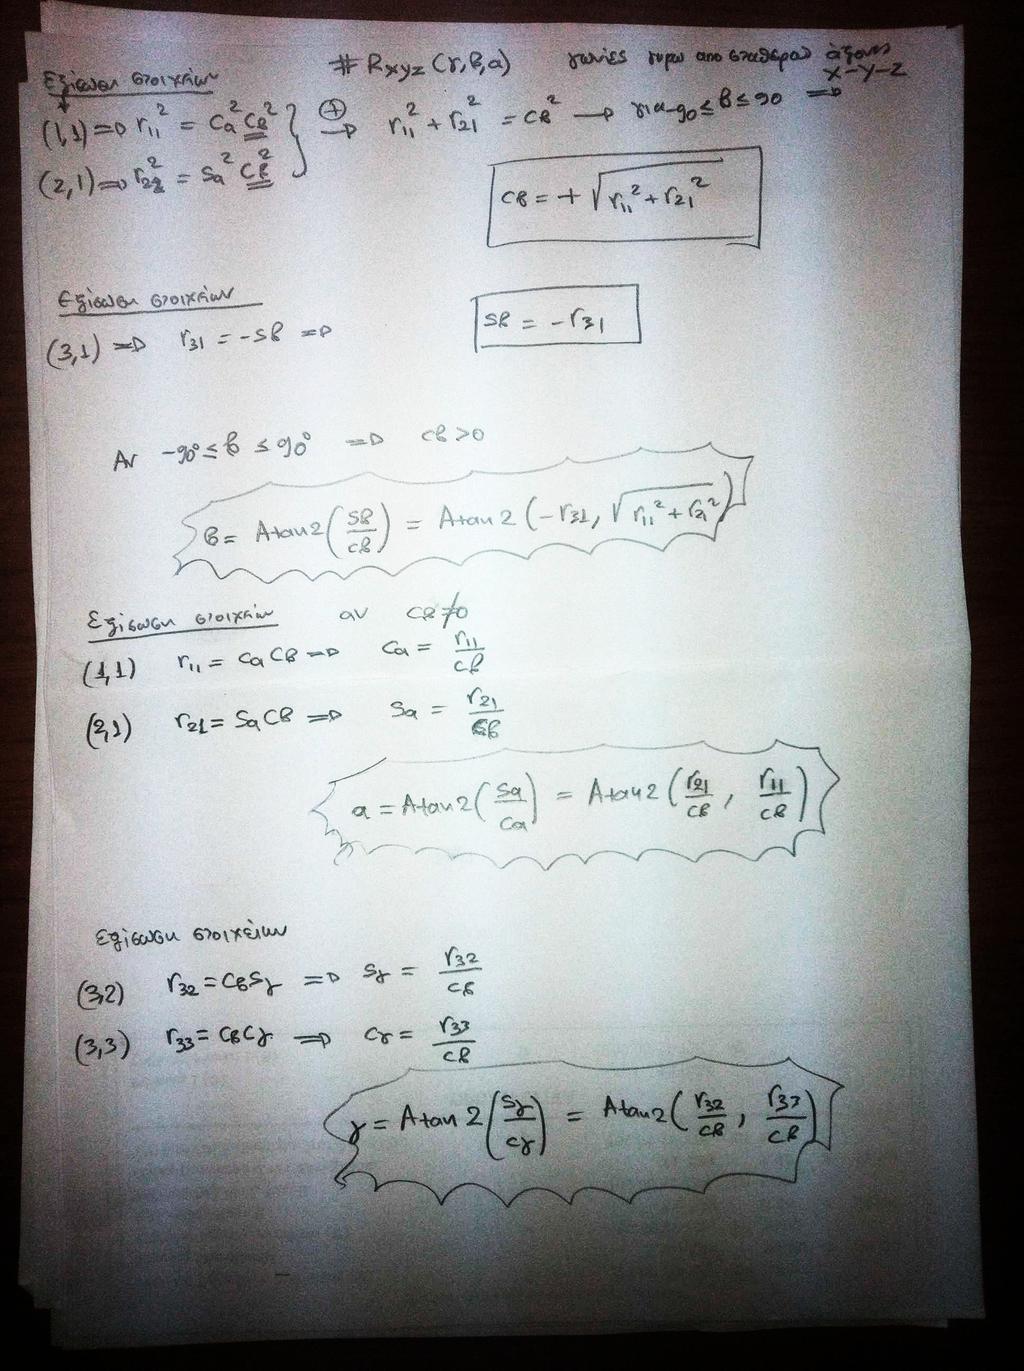 # Rxyz (γ, β, α) γωνίες γύρω από σταθερούς άξονες
X-Y-Z
Εξίσωση στοιχείων
(1,1) => r₁₁² = Ca² Cβ² } ⊕ → r₁₁² + r₂₁² = Cβ² → για -90 ≤ β ≤ 90 =>
(2,1) => r₂₁² = Sa² Cβ²
Cβ = + √(r₁₁² + r₂₁²)
Εξίσωση στοιχείων
(3,1) => r₃₁ = -Sβ => Sβ = -r₃₁
Αν -90° ≤ β ≤ 90° => Cβ > 0
β = Atan2(Sβ/Cβ) = Atan2(-r₃₁, √(r₁₁² + r₂₁²))
Εξίσωση στοιχείων αν Cβ ≠ 0
(1,1) r₁₁ = Ca Cβ => Ca = r₁₁/Cβ
(2,1) r₂₁ = Sa Cβ => Sa = r₂₁/Cβ
a = Atan2(Sa/Ca) = Atan2(r₂₁/Cβ, r₁₁/Cβ)
Εξίσωση στοιχείων
(3,2) r₃₂ = CβSγ => Sγ = r₃₂/Cβ
(3,3) r₃₃ = CβCγ => Cγ = r₃₃/Cβ
γ = Atan2(Sγ/Cγ) = Atan2(r₃₂/Cβ, r₃₃/Cβ)